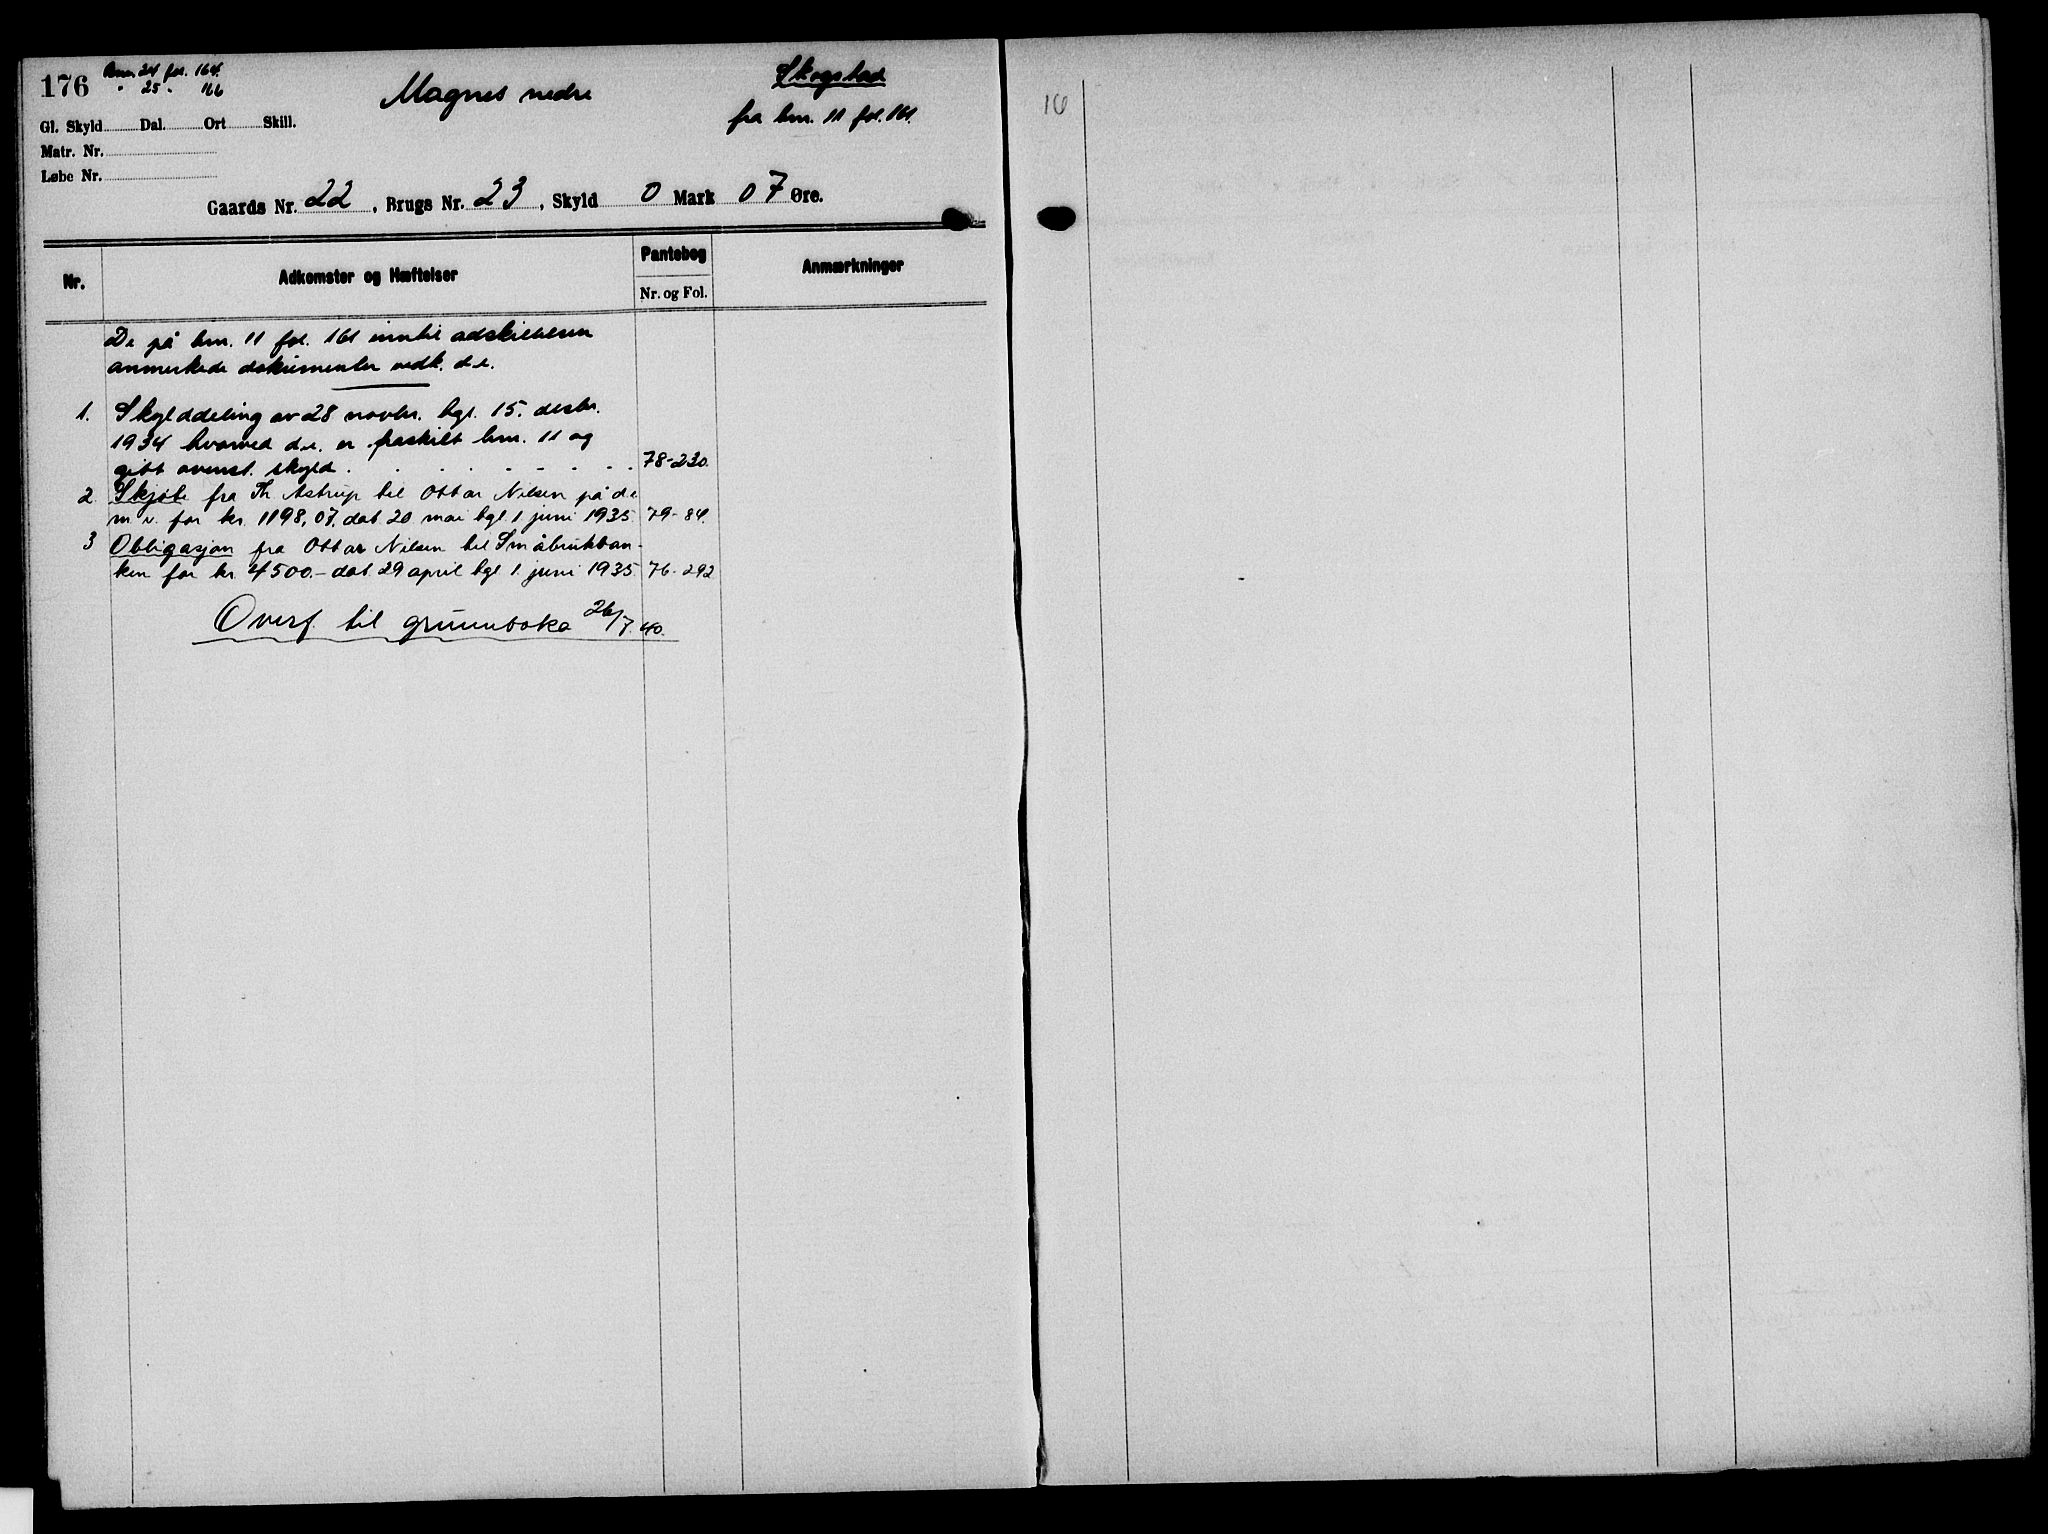 176 Bnr. 24 fol. 164.
" 25 " 166
Magnes nedre
Skogstad
fra bnr. 11 fol. 161.
Gl. Skyld Dal. Ort Skill.
Matr. Nr.
Løbe Nr.
Gaards Nr. 22, Brugs Nr. 23, Skyld 0 Mark 07 Øre.
Nr. Adkomster og Hæftelser Pantebog Nr. og Fol. Anmærkninger
De på bnr. 11 fol. 161 inntil adskillelsen
anmerkede dokumenter vedk. d.e.
1. Skylddeling av 28 novbr. tgl. 15. desbr.
1934 hvorved d.e. er fraskilt bnr. 11 og
gitt ovenst. skyld . . . . . . . 78-230.
2 Skjøte fra Th Astrup til Ottar Nilsen på d.e
m.v. for kr. 1198,07. dat 20 mai tgl. 1 juni 1935. 79-84.
3 Obligasjon fra Ottar Nilsen til Småbrukban-
ken for kr 4500.- dat 29 april tgl 1. juni 1935. 76-292
Overf. til grunnboka 26/7. 40.
16